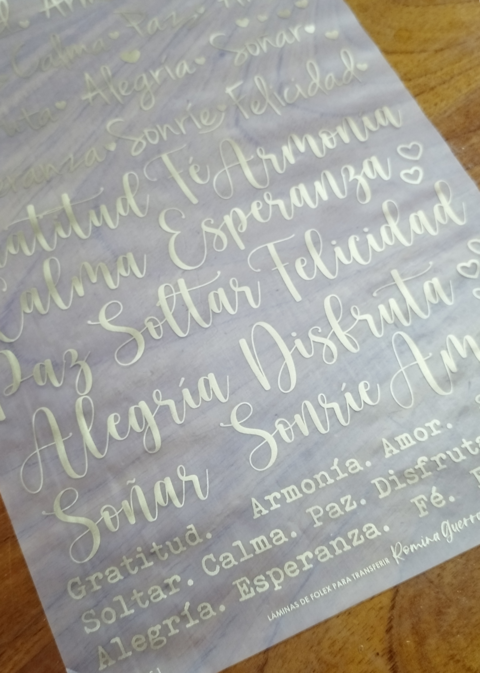 Calma Paz
Alegría Soñar
Sonríe Felicidad
Fé Armonía
Calma Esperanza
Paz Soltar Felicidad
Alegría Disfruta
Soñar Sonríe
Armonía. Amor.
Gratitud.
Soltar. Calma. Paz. Disfruta
Alegría. Esperanza. Fé.
LÁMINAS DE FOLEX PARA TRANSFERIR Romina Guerra